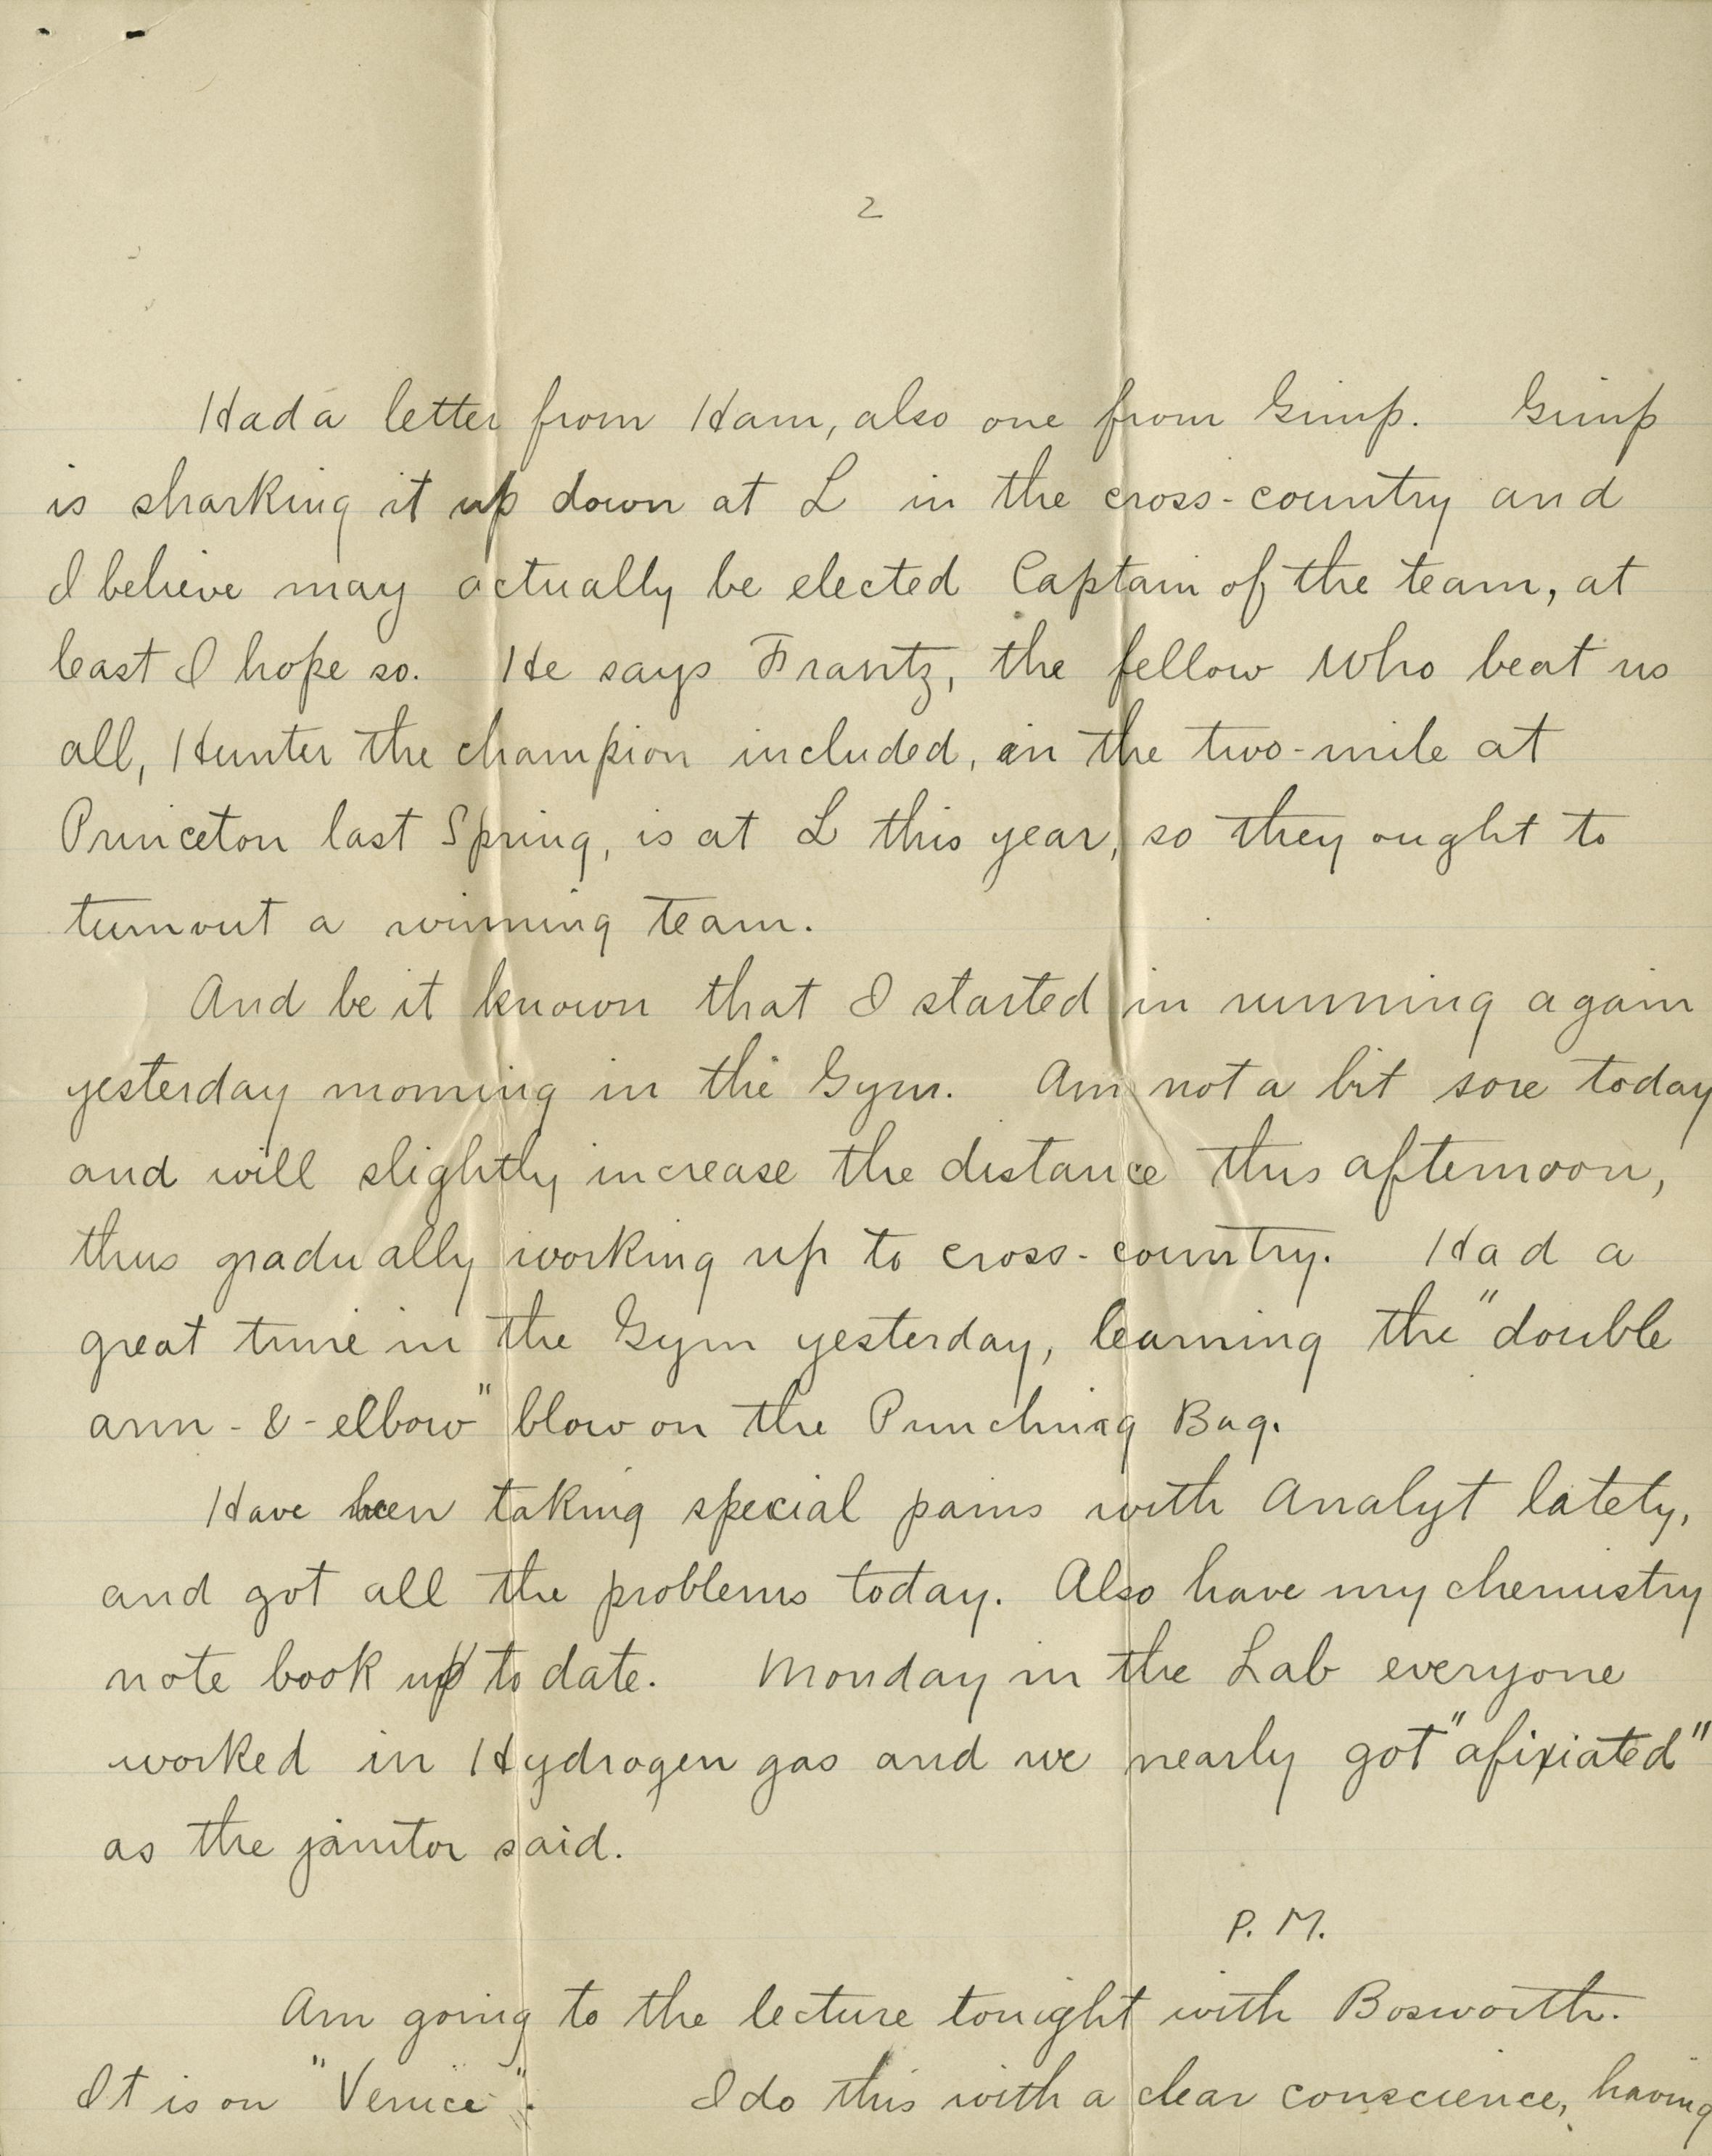 2
Had a letter from Ham, also one from Gimp. Gimp
is sharking it up down at L in the cross-country and
I believe may actually be elected Captain of the team, at
least I hope so. He says Frantz, the fellow who beat us
all, Hunter the champion included, in the two-mile at
Princeton last Spring, is at L this year, so they ought to
turn out a winning team.
And be it known that I started in running again
yesterday morning in the Gym. Am not a bit sore today
and will slightly increase the distance this afternoon,
thus gradually working up to cross-country. Had a
great time in the Gym yesterday, learning the "double
arm-&-elbow" blow on the Punching Bag.
Have been taking special pains with Analyt lately,
and got all the problems today. Also have my chemistry
note book up to date. Monday in the Lab everyone
worked in Hydrogen gas and we nearly got "afixiated"
as the janitor said.
P. M.
Am going to the lecture tonight with Bosworth.
It is on "Venice". I do this with a clear conscience, having